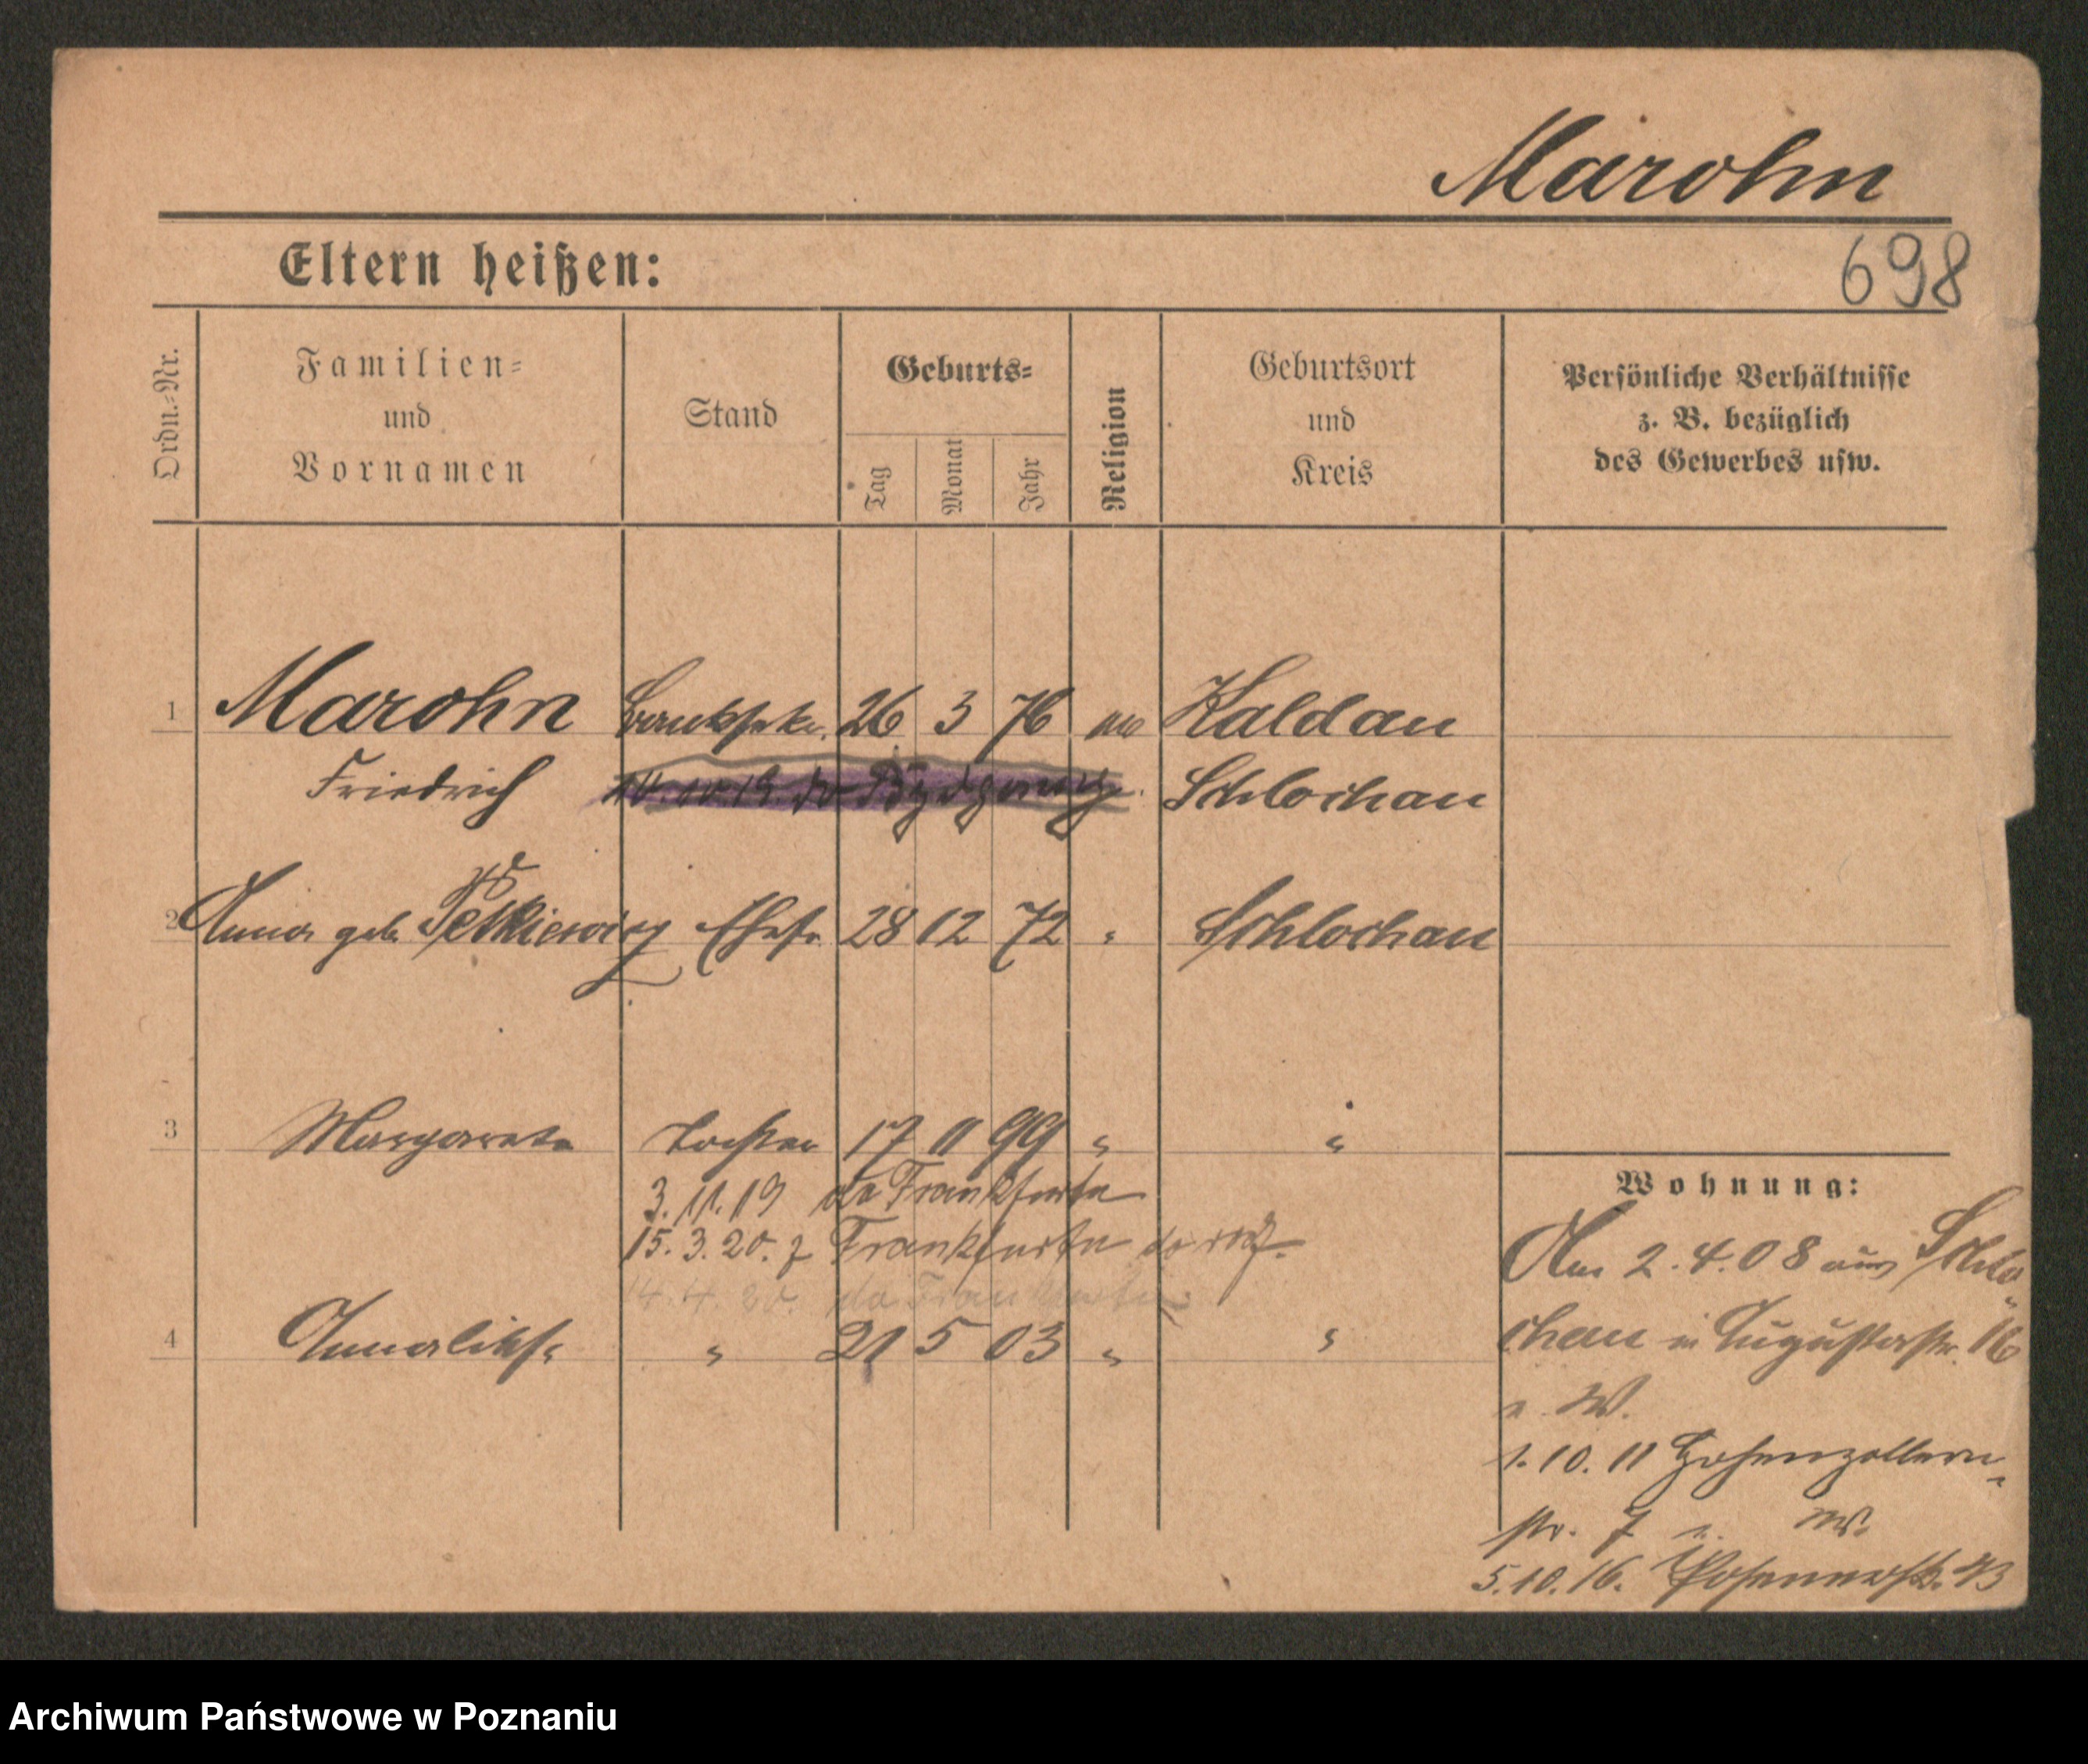 Marohn
698
Eltern heißen:
Ordn.-Nr.
Familien-
und
Vornamen
Stand
Geburts-
Tag
Monat
Jahr
Religion
Geburtsort
und
Kreis
Persönliche Verhältnisse
z. B. bezüglich
des Gewerbes usw.
1 Marohn 26 3 76 Kaldau
Friedrich do Bydgoszczy Schlochau
2 Anna geb. Petkiewicz Ehefr. 28 12 72 " Schlochau
3 Margarete Tochter 17 11 99 " "
3.11.19 do Frankfurtu
15.3.20. z Frankfurtu
14.4.20. do Frankfurtu
4 Anneliese " 21 5 03 " "
Wohnung:
Am 2.4.08 aus Schlo
chau in Augustastr. 16
b. W.
1.10.11 Hohenzollern-
str. 7 b. W.
5.10.16. Posenerstr. 43